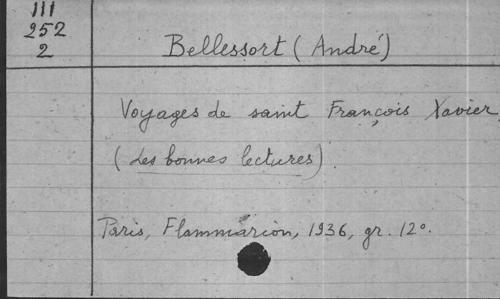 III
252
2
Bellessort (André)
Voyages de saint François Xavier
(Les bonnes lectures).
Paris, Flammarion, 1936, gr. 12o.